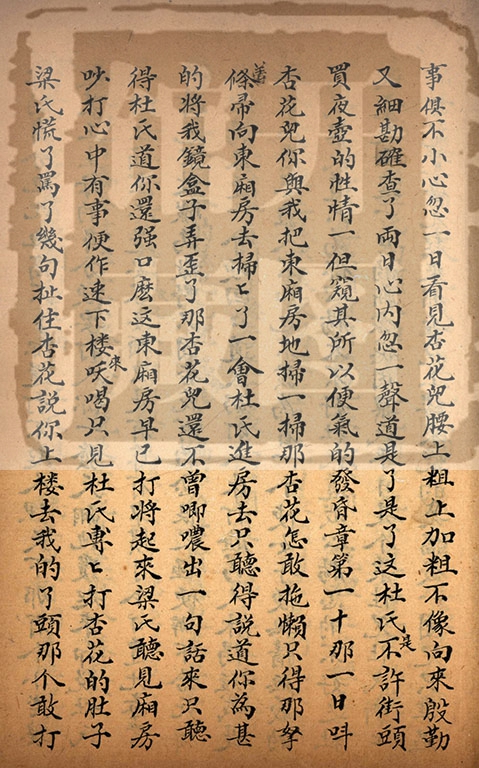 事俱不小心忽一日看見杏花兒腰上粗上加粗不像向來殷勤
又細勘確查了兩日心內忽一聲道是了是了这杜氏是不許街頭
買夜壺的性情一但窺其所以便氣的發昏章第一十那一日叫
杏花兒你與我把東廂房地掃一掃那杏花怎敢拖懶只得那
條帚向東廂房去掃匕了一會杜氏進房去只聽得說道你為甚
的將我鏡盒子弄歪了那杏花兒還不曾唧噥出一句話來只聽
得杜氏道你還强口麽这東廂房早已打將起來梁氏聽見廂房
吵打心中有事便作速下楼來吆喝只見杜氏專匕打杏花的肚子
梁氏慌了罵了幾句扯住杏花說你上楼去我的了頭那个敢打